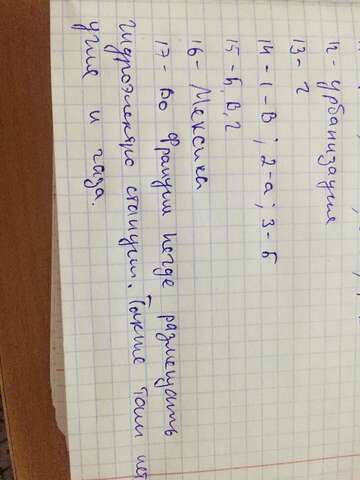 12 - урбанизация
13 - г
14 - 1 - в ; 2 - а ; 3 - б
15 - б, в, г
16 - Мексика
17 - Во Франции негде размещать
гидроэлектро станции. Также там нет
угля и газа.